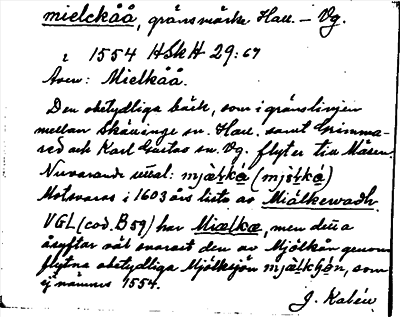 mielckåå, gränsmärke Hall. – Vg.
i 1554 HSkH 29:67
Även: Mielkåå.
Den obetydliga bäck, som i gränslinjen
mellan Skällinge sn. Hall. samt Grimma-
red och Karl Gustav sn. Vg. flyter till Måsen.
Nuvarande uttal:
Motsvaras i 1603 års lista av Miölkewadh.
VGL (cod. B 59) har Miælkæ, men detta
åsyftar väl snarast den av Mjölkån genom-
flytna obetydliga Mjölksjön, som
ej nämnes 1554.
J. Kalén